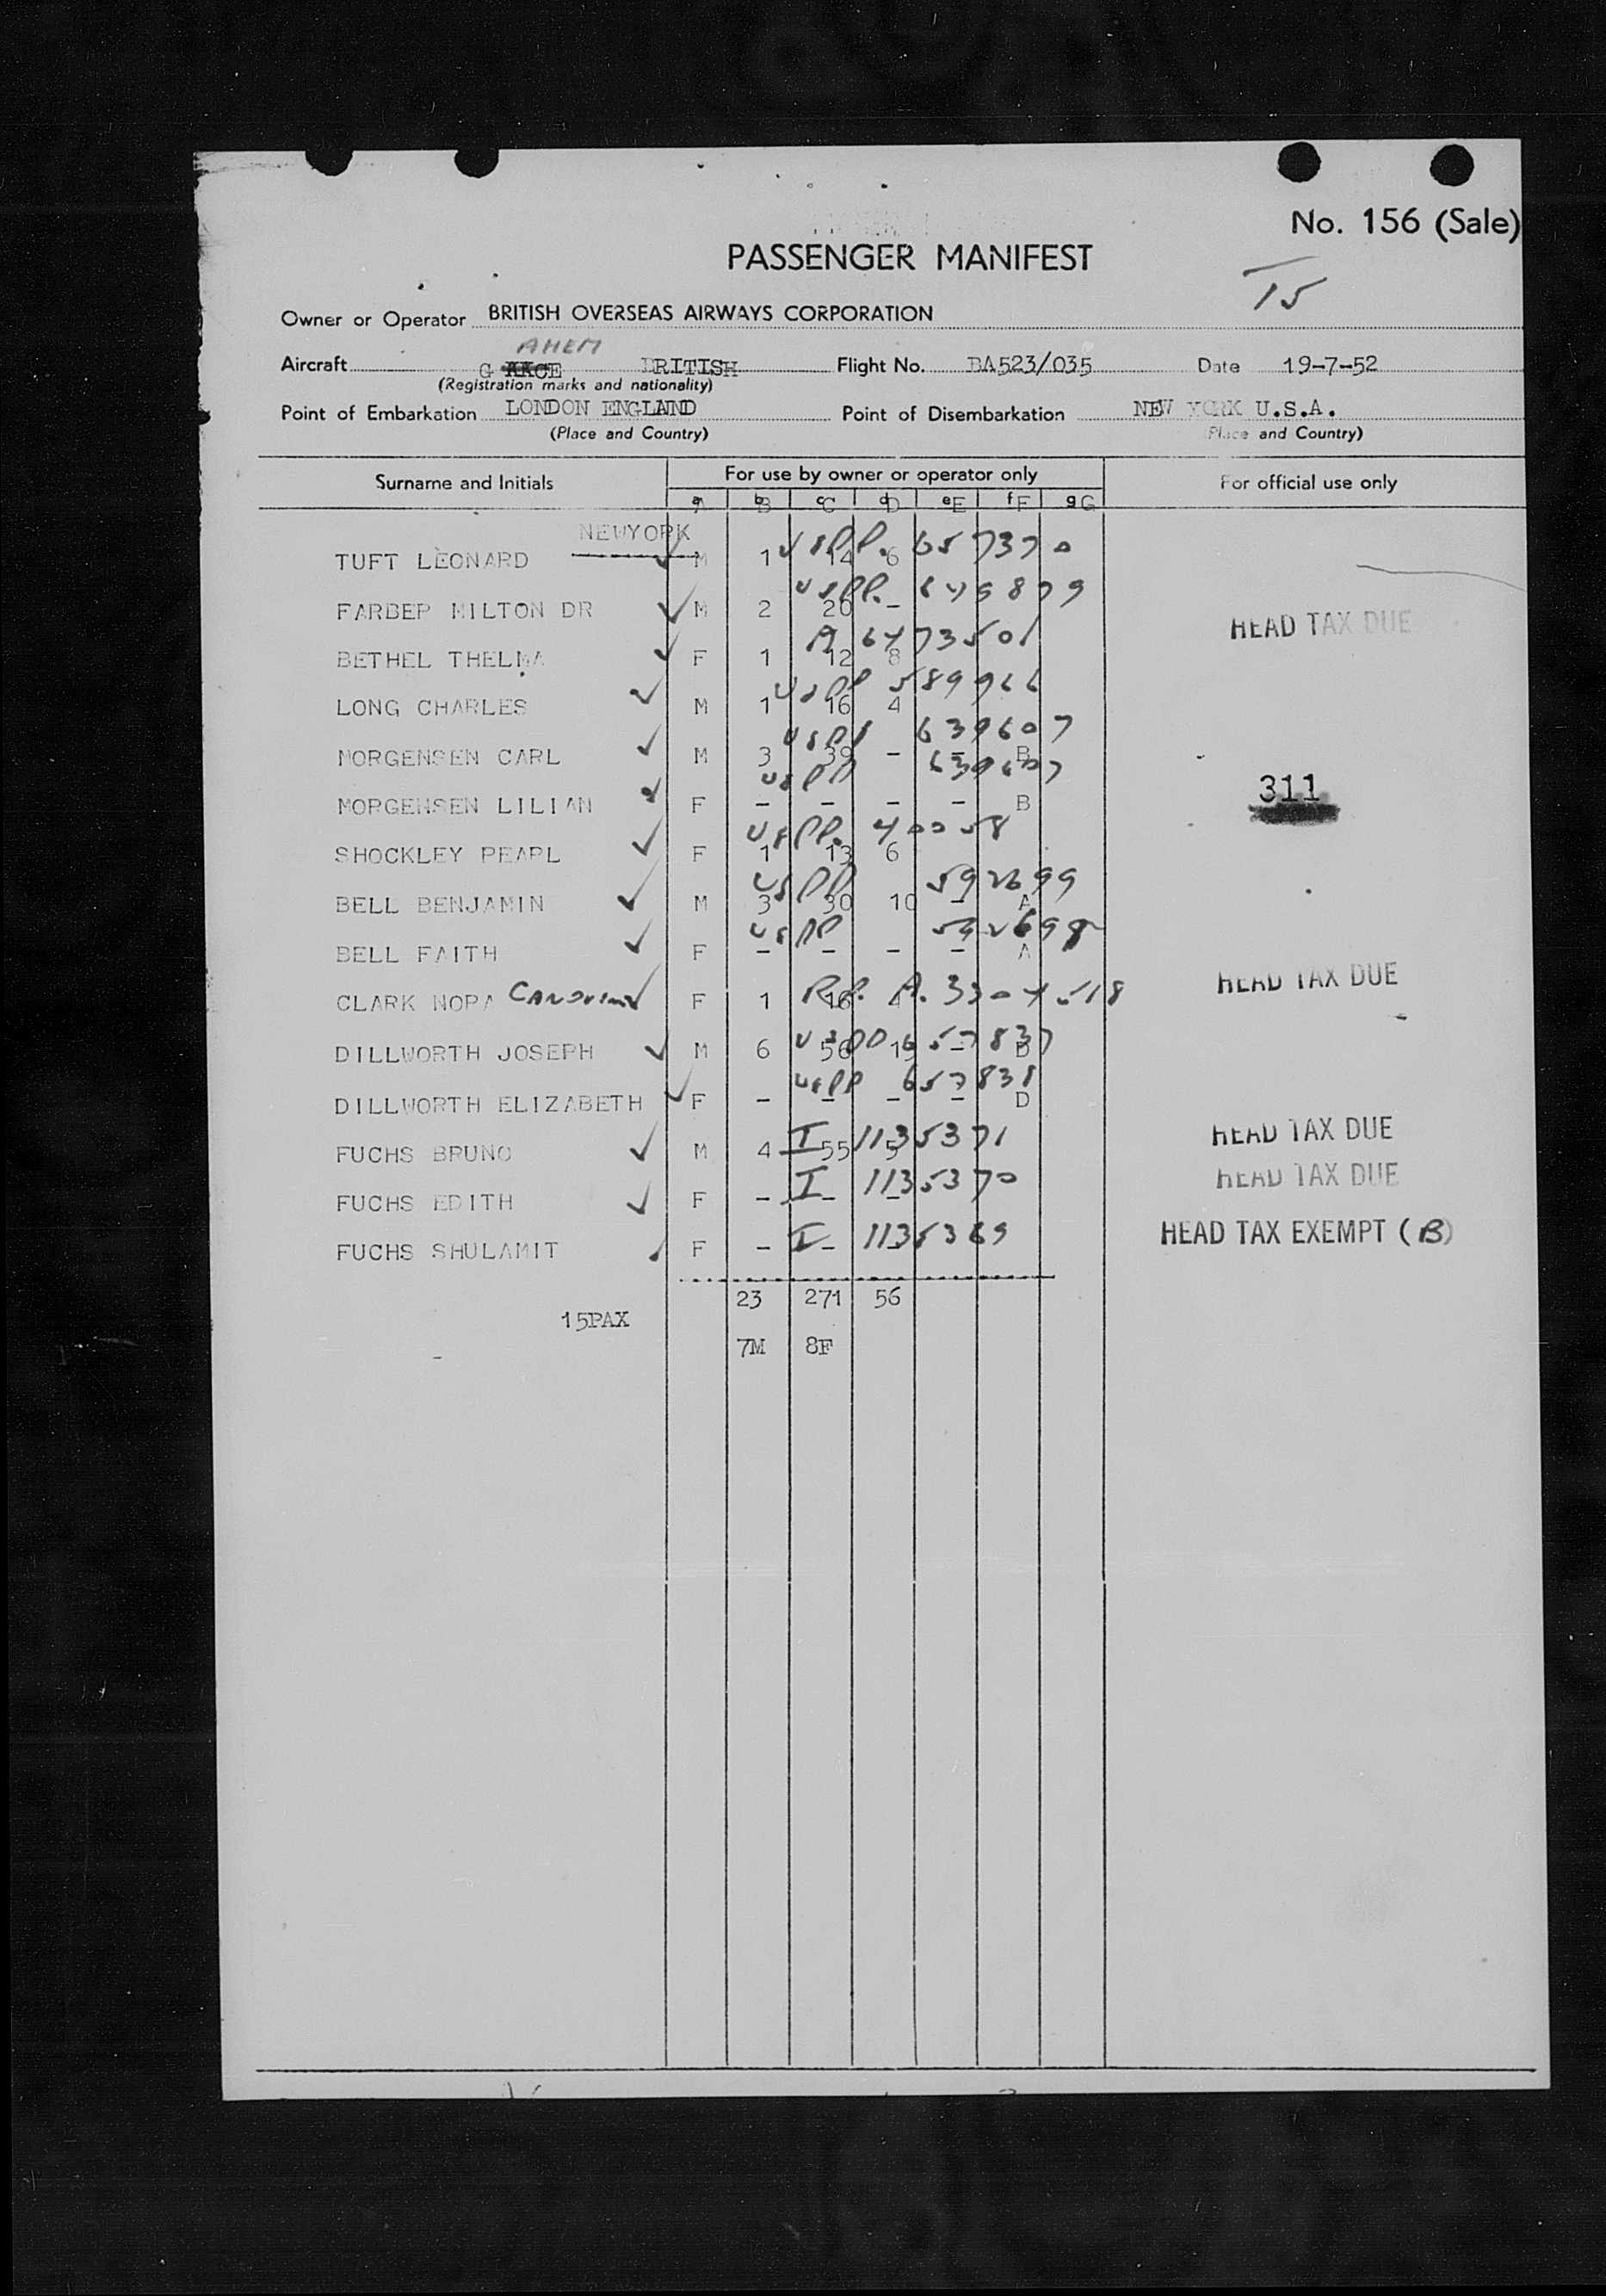 No. 156 (Sale)
PASSENGER MANIFEST
15
Owner or Operator BRITISH OVERSEAS AIRWAYS CORPORATION
AHEM
Aircraft G AKCE BRITISH Flight No. BA523/035 Date 19-7-52
(Registration marks and nationality)
Point of Embarkation LONDON ENGLAND Point of Disembarkation NEW YORK U.S.A.
(Place and Country) (Place and Country)
Surname and Initials For use by owner or operator only For official use only
a A b B c C d D e E f F g G
NEWYORK
USPP. 657370
TUFT LEONARD M 1 14 6
USPP. 649879
FARBER MILTON DR M 2 20 - HEAD TAX DUE
A 6473501
BETHEL THELMA F 1 12 8
USPP 589966
LONG CHARLES M 1 16 4
USPP 639607
MORGENSEN CARL M 3 39 - - B
USPP 639607
311
MORGENSEN LILIAN F - - - - B
USPP. 40058
SHOCKLEY PEARL F 1 13 6
USPP 592699
BELL BENJAMIN M 3 30 10 - A
USPP 592698
BELL FAITH F - - - - A
HEAD TAX DUE
CLARK NORA F 1 16 4 R.P. A. 3304518
USPP 657837
DILLWORTH JOSEPH M 6 56 13 - D
USPP 657838
DILLWORTH ELIZABETH F - - - - D
I 1135371 HEAD TAX DUE
FUCHS BRUNO M 4 55 5
I 1135370 HEAD TAX DUE
FUCHS EDITH F - - -
I 1135369 HEAD TAX EXEMPT (B)
FUCHS SHULAMIT F - - -
23 271 56
15PAX
7M 8F